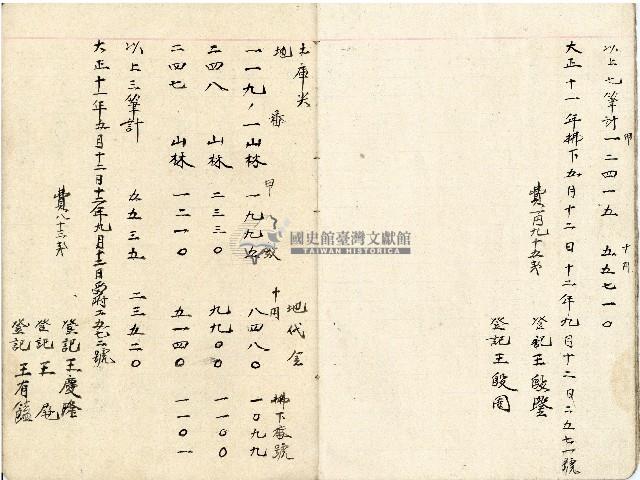 以上七筆計一二四一五 五五七一〇
甲
十円
大正十一年拂下五月十二日十二年九月十二日二五七一號
費一円九十五戔
登記王殿瑩
登記王殿周
土庫尖
地番 甲數 地代金 拂下張號
十円
一一九ノ一山林 一九九五 八四八〇 一〇九九
二四八 山林 二三三〇 九九〇〇 一一〇〇
二四七 山林 一二一〇 五一四〇 一一〇一
以上三筆計 五五三五 二三五二〇
大正十一年五月十二日十二年九月十二日 二五七二號
費八十三戔
登記王慶隆
登記王
登記王有鎰
國史館臺灣文獻館
TAIWAN HISTORICA